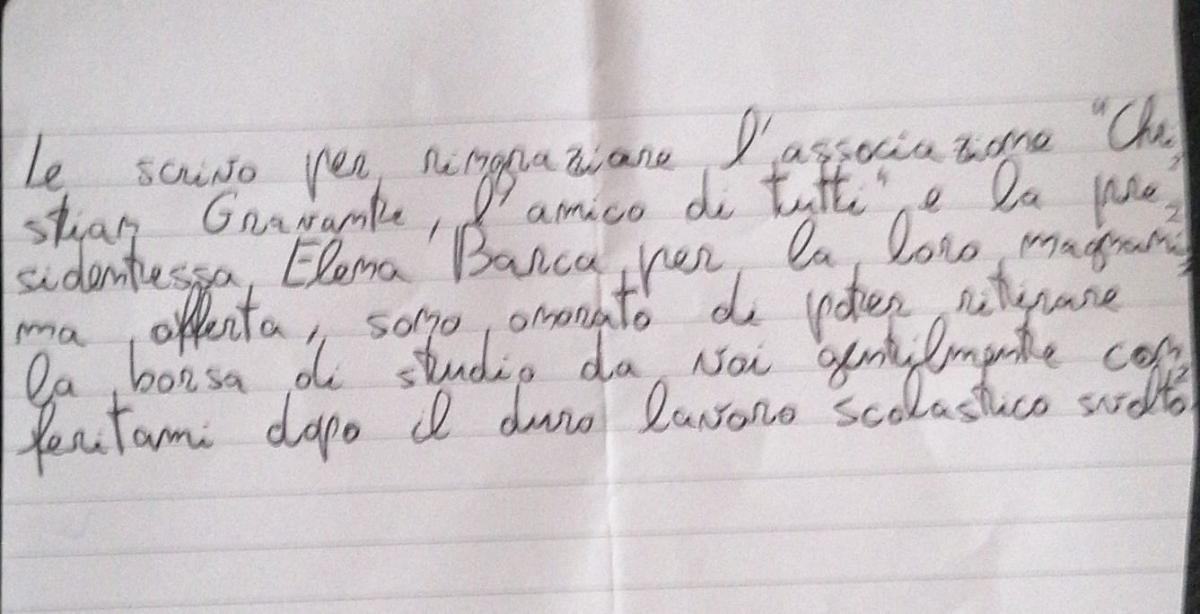 Le scrivo per ringraziare l'associazione "Chri
stian Gravante, l'amico di tutti" e la pre
sidentessa Elena Barca per la loro magnani
ma offerta, sono onorato di poter ritirare
la borsa di studio da voi gentilmente con
feritami dopo il duro lavoro scolastico svolto